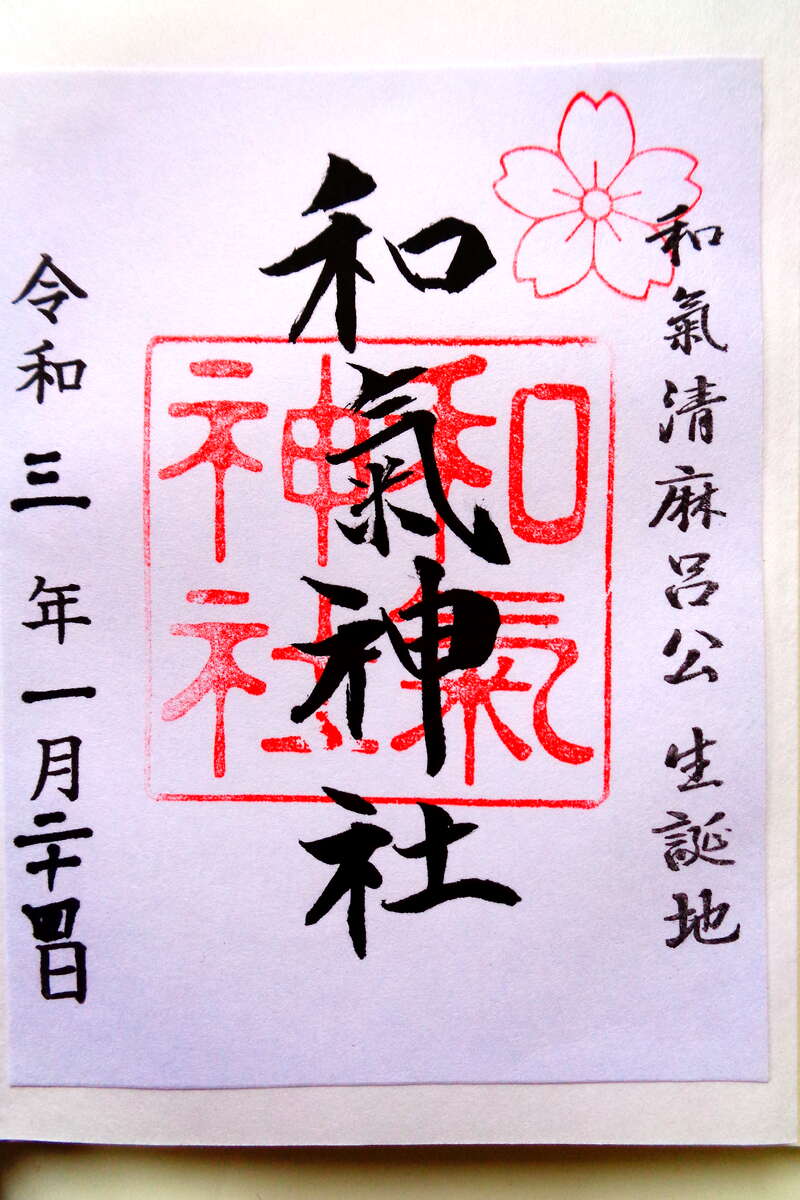 和氣清麻呂公 生誕地
和氣神社
和氣
神社
令和三年一月二十四日